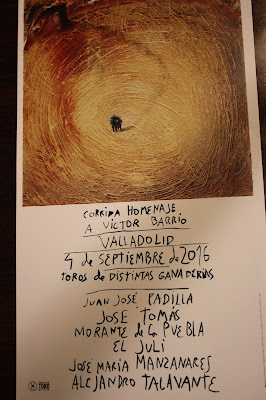 CORRIDA HOMENAJE
A VÍCTOR BARRIO
VALLADOLID
4 de SEPTIEMBRE de 2016
TOROS de DISTINTAS GANADERÍAS
JUAN JOSÉ PADILLA
JOSÉ TOMÁS
MORANTE de la PUEBLA
EL JULI
JOSÉ MARÍA MANZANARES
ALEJANDRO TALAVANTE
TORO